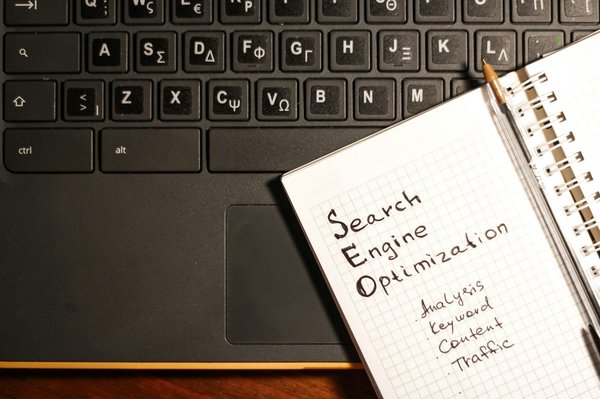 Q W S ς E € R P
A S Σ D Δ F Φ G Γ H J K L Λ
Z X C Ψ V Ω B N M
ctrl alt
Search
Engine
Optimization
. Analysis
. Keyword
. Content
. Traffic
.